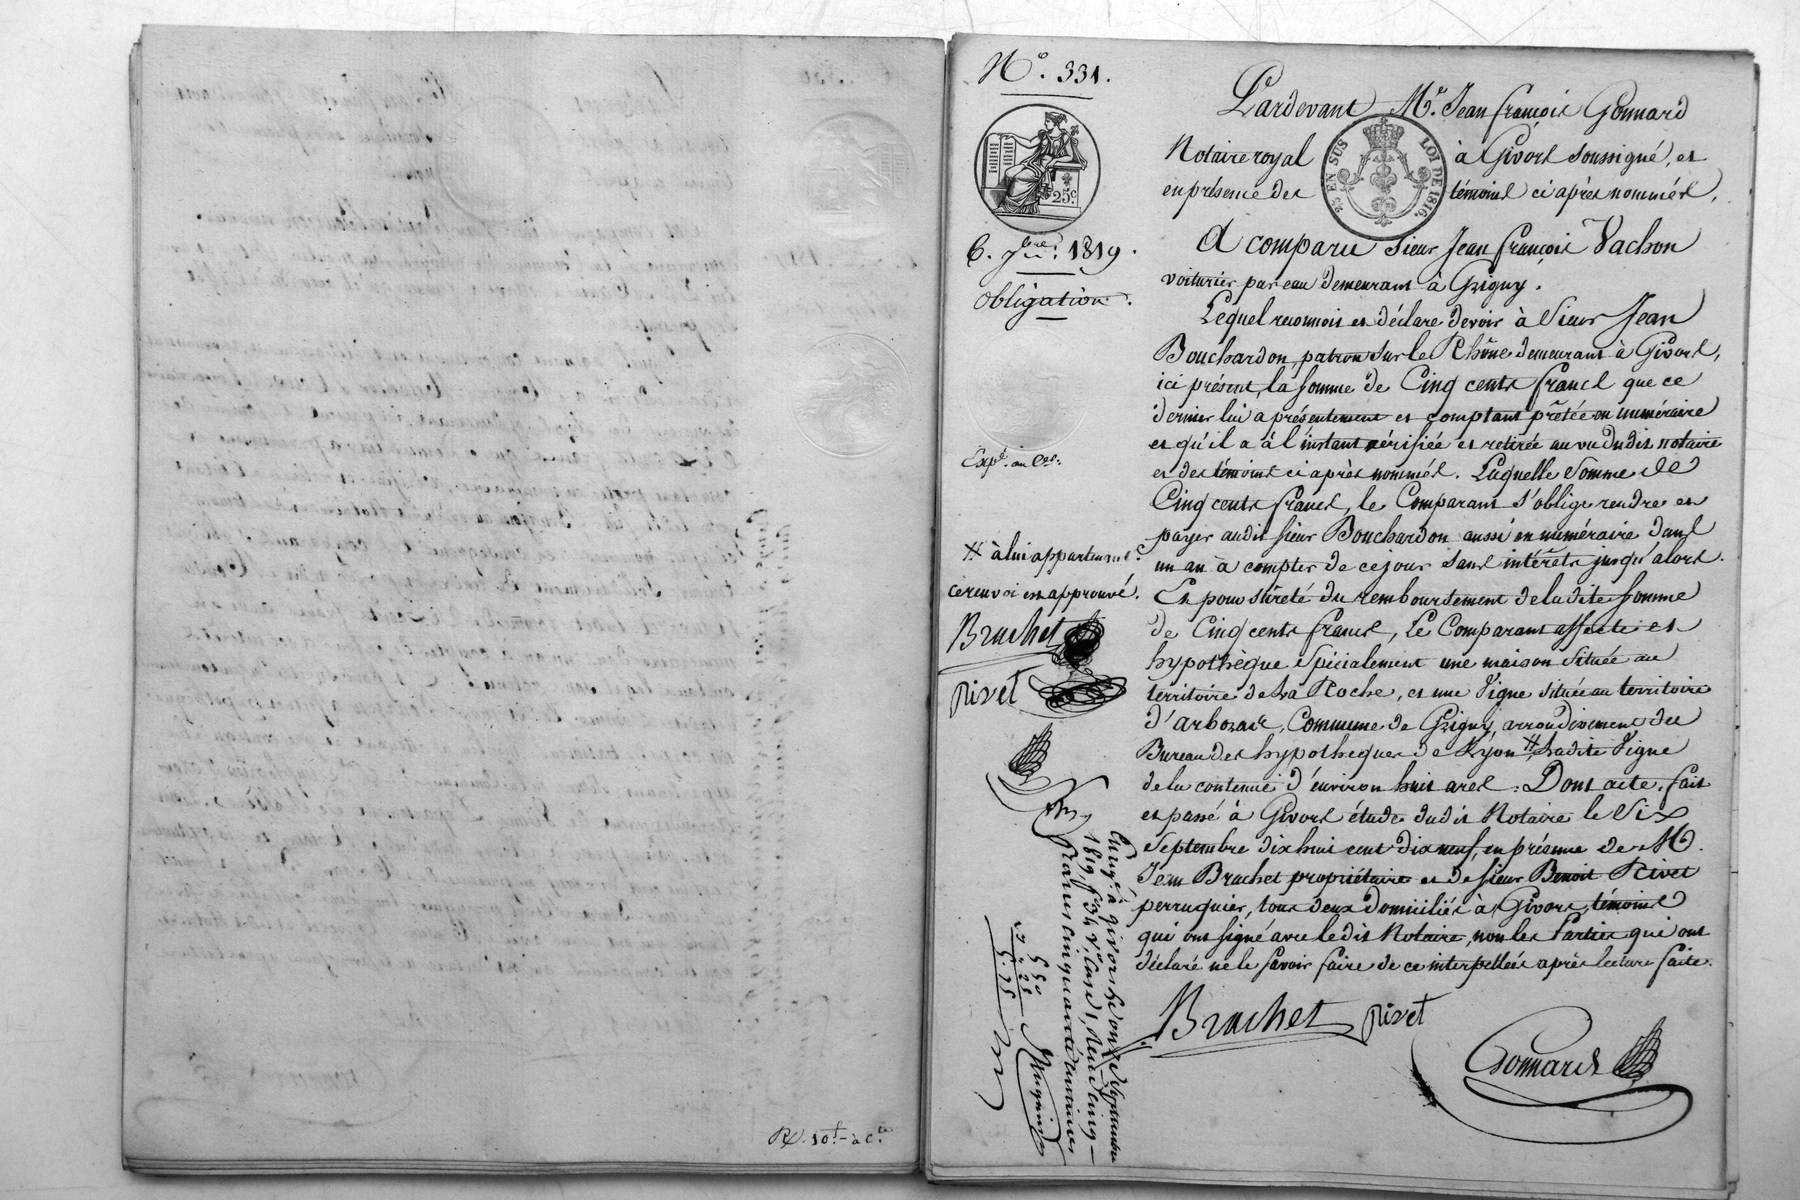 N°. 331.
25c
6. 7bre. 1819.
Obligation.
Expé. au Cer.
# à lui appartenant.
ce renvoi est approuvé.
Brachet
Rivet
Enregé. à Givors le onze Septembre
1819, f° 34 v° case 1, Reçu cinq
francs cinquante centimes
5 50
25
5. 75
Pardevant Me. Jean françois Gonnard
Notaire royal à Givors soussigné, et
en présence des témoins ci après nommés,
25 EN SUS LOI DE 1816.
A comparu sieur Jean françois Vachon
voiturier par eau demeurant à Grigny.
Lequel reconnois et déclare devoir à Sieur Jean
Bouchardon patron sur le Rhône demeurant à Givors,
ici présent, la somme de Cinq cents francs que ce
dernier lui a présentement et comptant prêtée en numéraire
et qu'il a à l'instant vérifiée et retirée au vu dudit notaire
et des témoins ci après nommés. Laquelle somme de
Cinq cents francs, le Comparant s'oblige rendre et
payer audit sieur Bouchardon aussi en numéraire dans
un an à compter de ce jour sans intérêts jusqu'alors.
Et pour sûreté du remboursement de ladite somme
de Cinq cents francs, Le Comparant affecte et
hypothèque spécialement une maison située au
territoire de la Roche, et une Vigne située au territoire
Commune de Grigny, arrondissement du
Bureau des hypothèques de Lyon # Ladite Vigne
de la contenue d'environ huit ares. Dont acte, fait
et passé à Givors étude dudit Notaire le Six
Septembre dix huit cent dix neuf, en présence de M.
Jean Brachet propriétaire et de sieur Benoit Rivet
perruquier, tous deux domiciliés à Givors, témoins
qui ont signé avec ledit Notaire, non les Parties qui ont
déclaré ne le savoir faire de ce interpellées après lecture faite.
Brachet Rivet
Gonnard